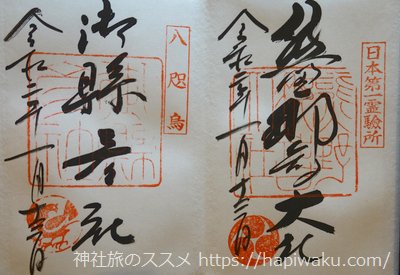 日本第一霊驗所
熊野那智大社
令和二年一月十三日
八咫烏
御縣彦社
令和二年一月十三日
神社旅のススメ https://hapiwaku.com/